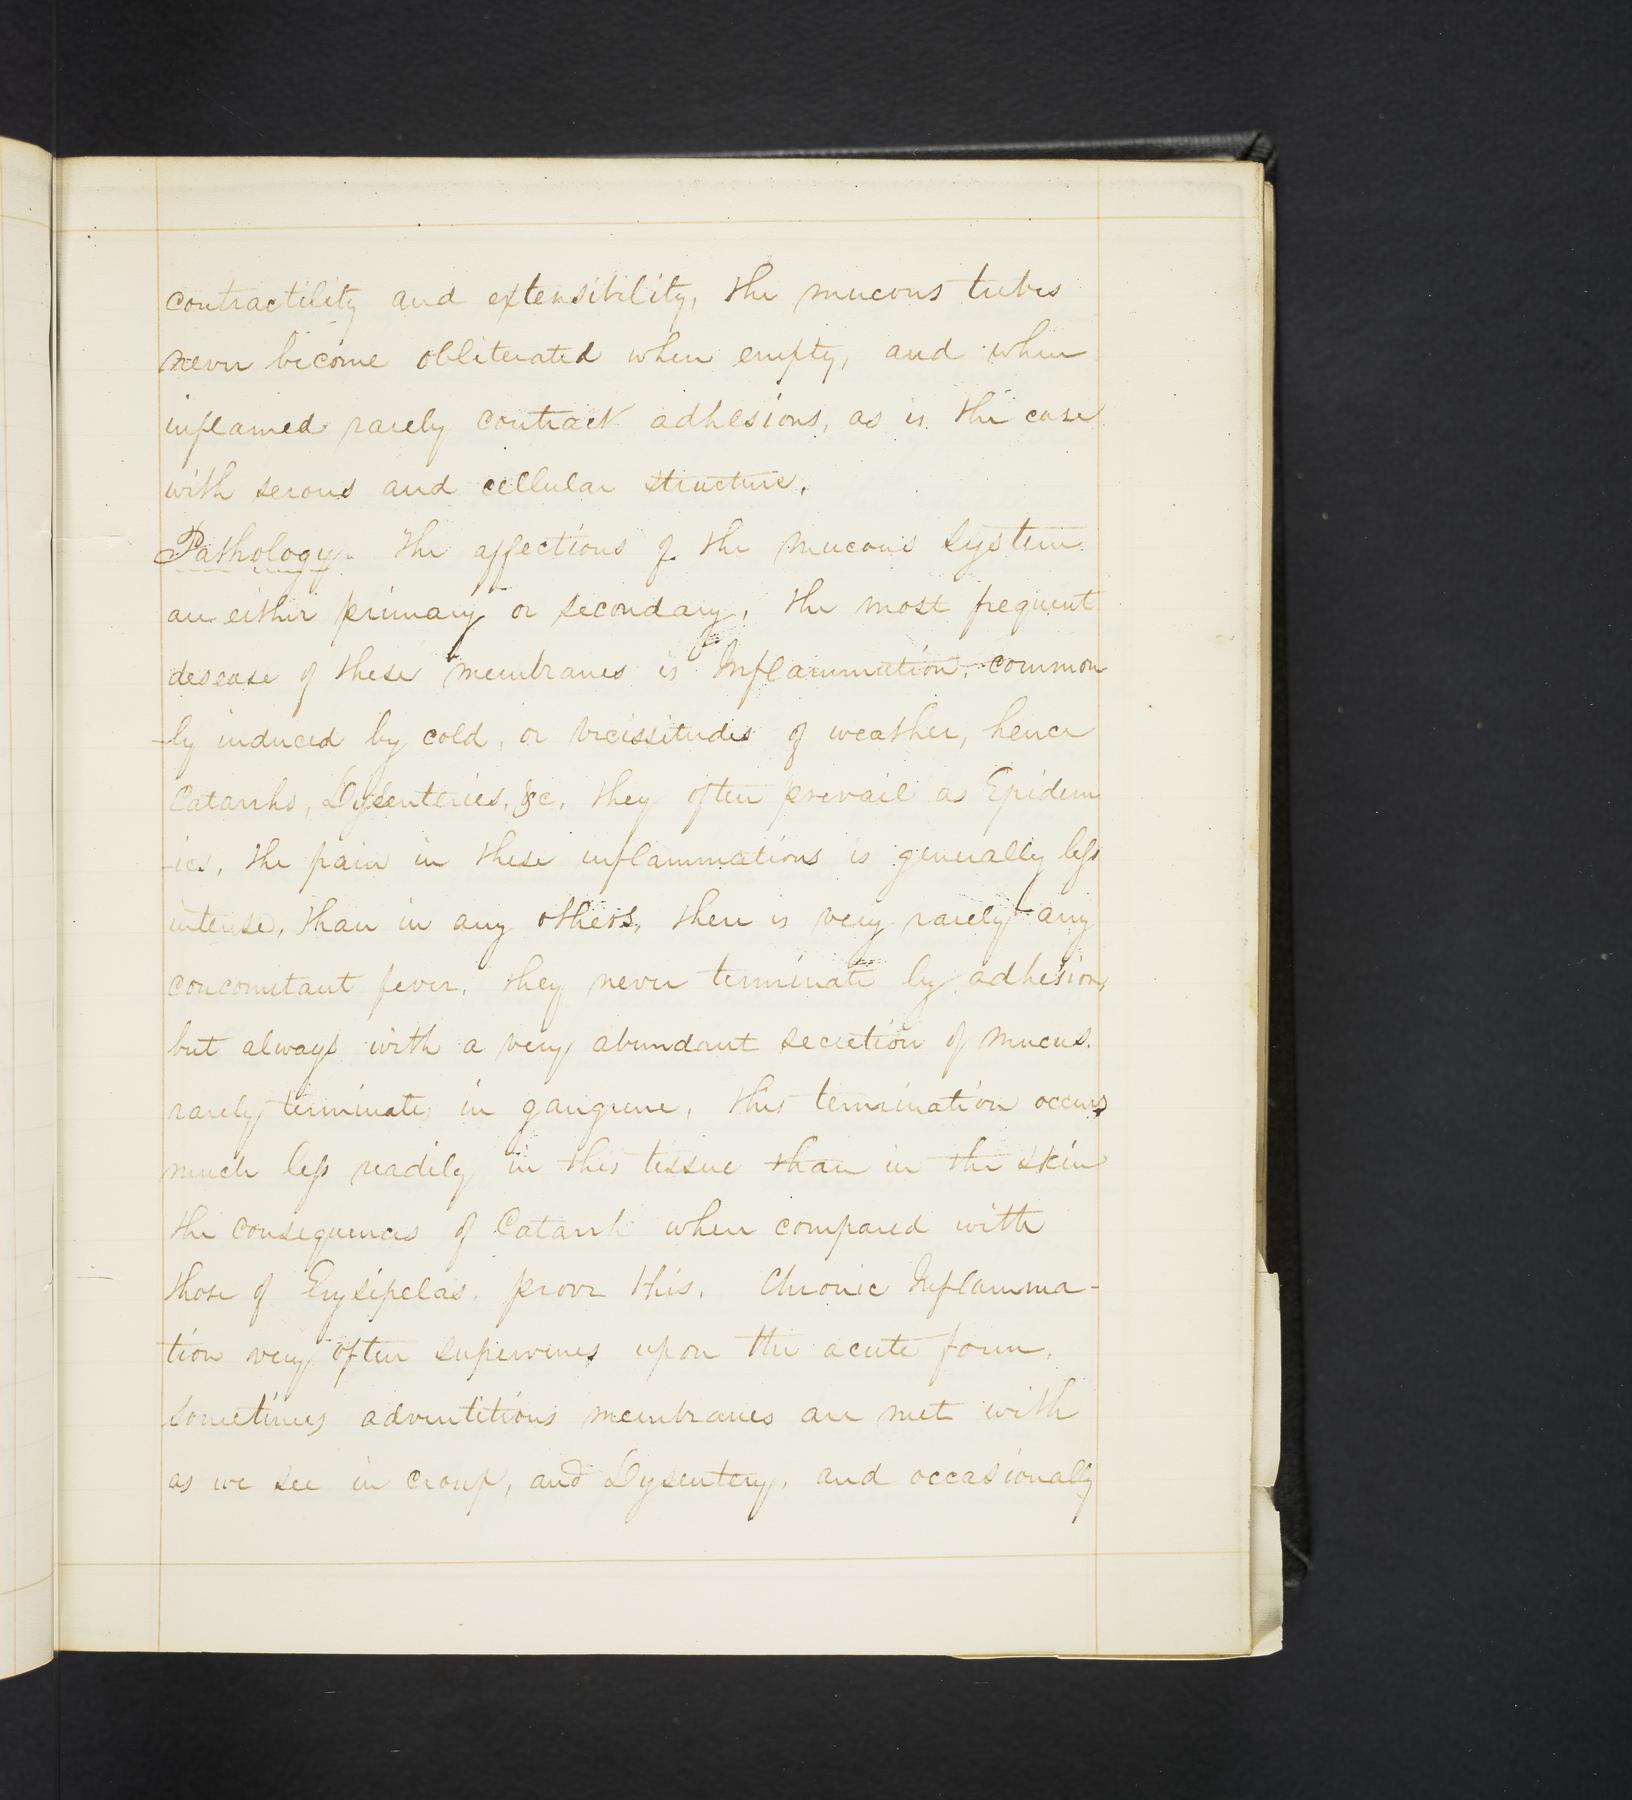 contractility and extensibility, the mucous tubes
never become obliterated when empty, and when
inflamed rarely contract adhesions, as is the case
with serous and cellular structure.
Pathology. The affections of the mucous System
are either primary or secondary, the most frequent
desease of these membranes is Inflammation, common
-ly induced by cold, or vicissitudes of weather, hence
Catarrhs, Dysenteries, &c, they often prevail as Epidem
-ics, the pain in these inflammations is generally less
intense, than in any others, there is very rarely any
concomitant fever, they never terminate by adhesion,
but always with a very abundant secretion of mucus.
rarely terminate in gangrene, this termination occurs
much less readily in this tissue than in the skin
the consequences of Catarrh when compared with
those of Erysipelas prove this. Chronic Inflamma-
tion very often supervenes upon the acute form,
sometimes adventitious membranes are met with
as we see in croup, and Dysentery, and occasionally